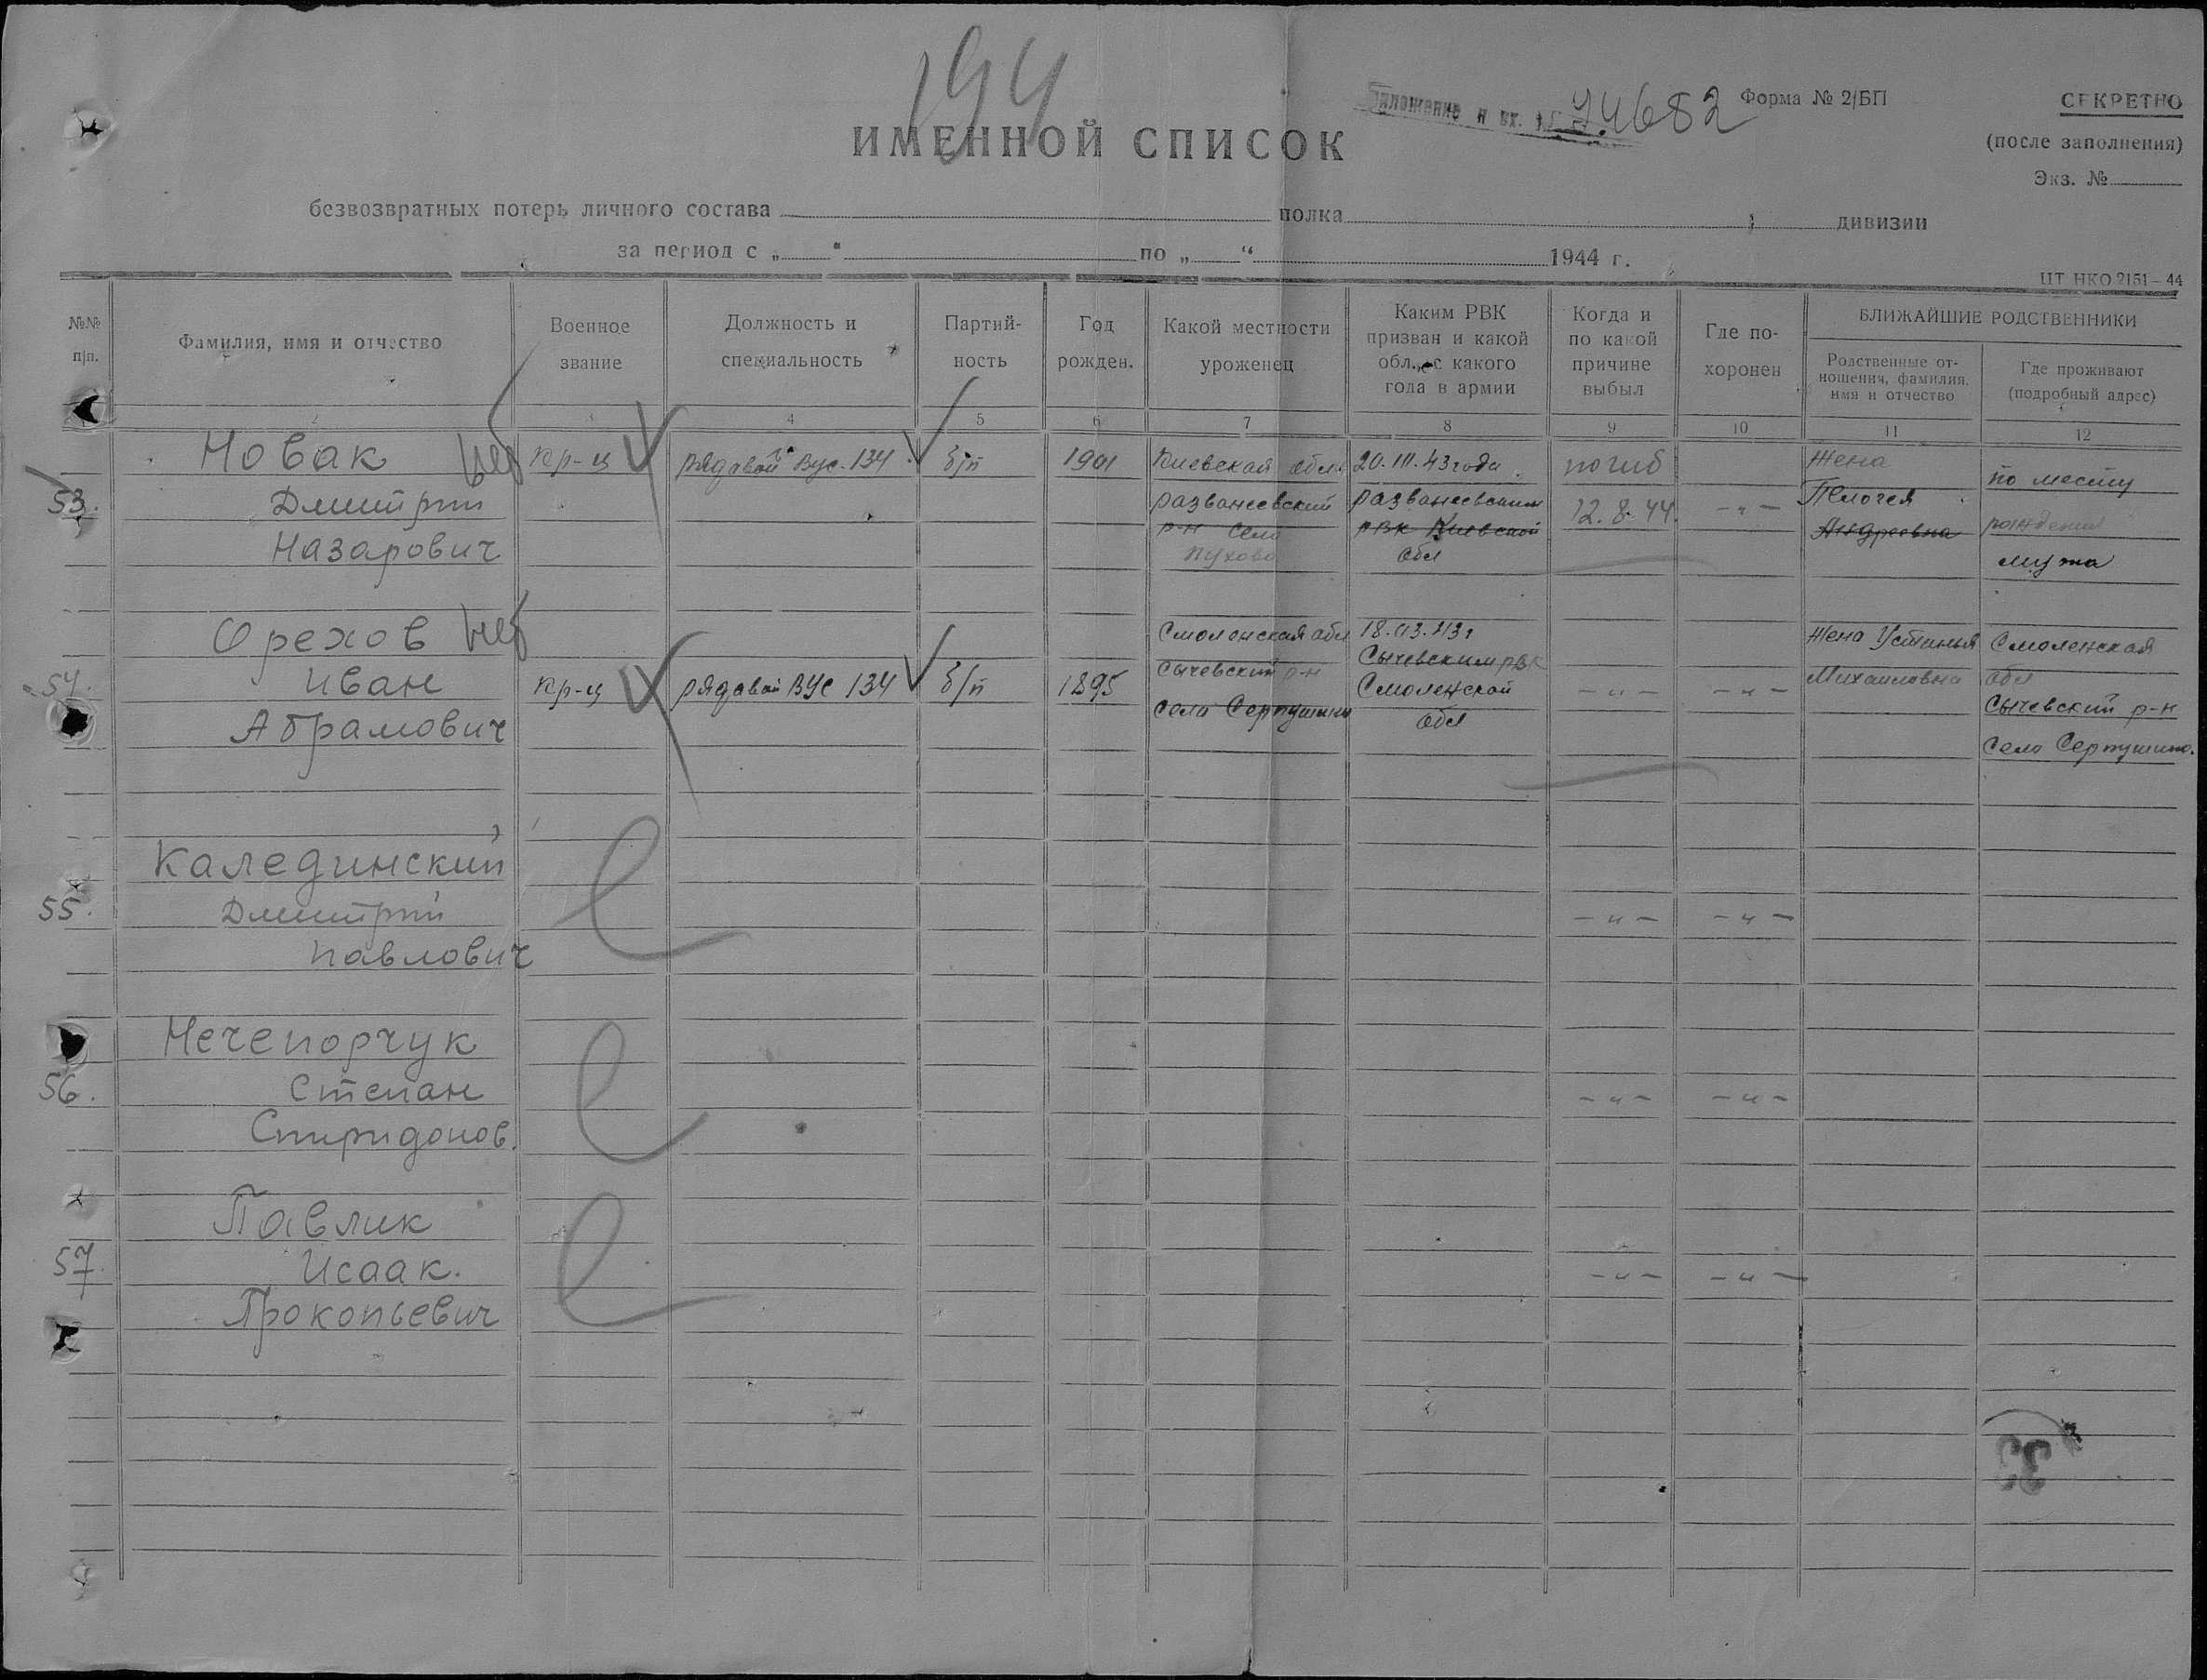 194
Приложение к вх. № 74682
Форма № 2/БП
СЕКРЕТНО
(после заполнения)
Экз. №
ИМЕННОЙ СПИСОК
безвозвратных потерь личного состава полка дивизии
за период с „ “ по „ “ 1944 г.
ЦТ НКО 2151—44
№№ п/п.
Фамилия, имя и отчество
Военное звание
Должность и специальность
Партий-
ность
Год рожден.
Какой местности уроженец
Каким РВК
призван и какой
обл., с какого
года в армии
Когда и
по какой
причине
выбыл
Где по-
хоронен
БЛИЖАЙШИЕ РОДСТВЕННИКИ
Родственные от-
ношения, фамилия,
имя и отчество
Где проживают
(подробный адрес)
2 3 4 5 6 7 8 9 10 11 12
53.
Новак
Дмитрий
Назарович
кр-ц
рядовой Вус-134
б/п
1901
Киевская обл.
разваневский
р-н село
Пухова
20.III.43 года
разваневским
РВК Киевской
обл
погиб
12.8.44.
-"-
Жена
Пелогея
Андреевна
по месту
рождения
мужа
54.
Орехов
Иван
Абрамович
кр-ц
рядовой ВУС 134
б/п
1895
Смоленская обл
Сычевский р-н
село Сертушино
18.03.43г
Сычевским РВК
Смоленской
обл
-"-
-"-
Жена Устинья
Михайловна
Смоленская
обл
Сычевский р-н
село Сертушино.
55.
Калединский
Дмитрий
Павлович
-"-
-"-
56.
Нечепорчук
Степан
Спиридонов.
-"-
-"-
57.
Павлик
Исаак.
Прокопьевич
-"-
-"-